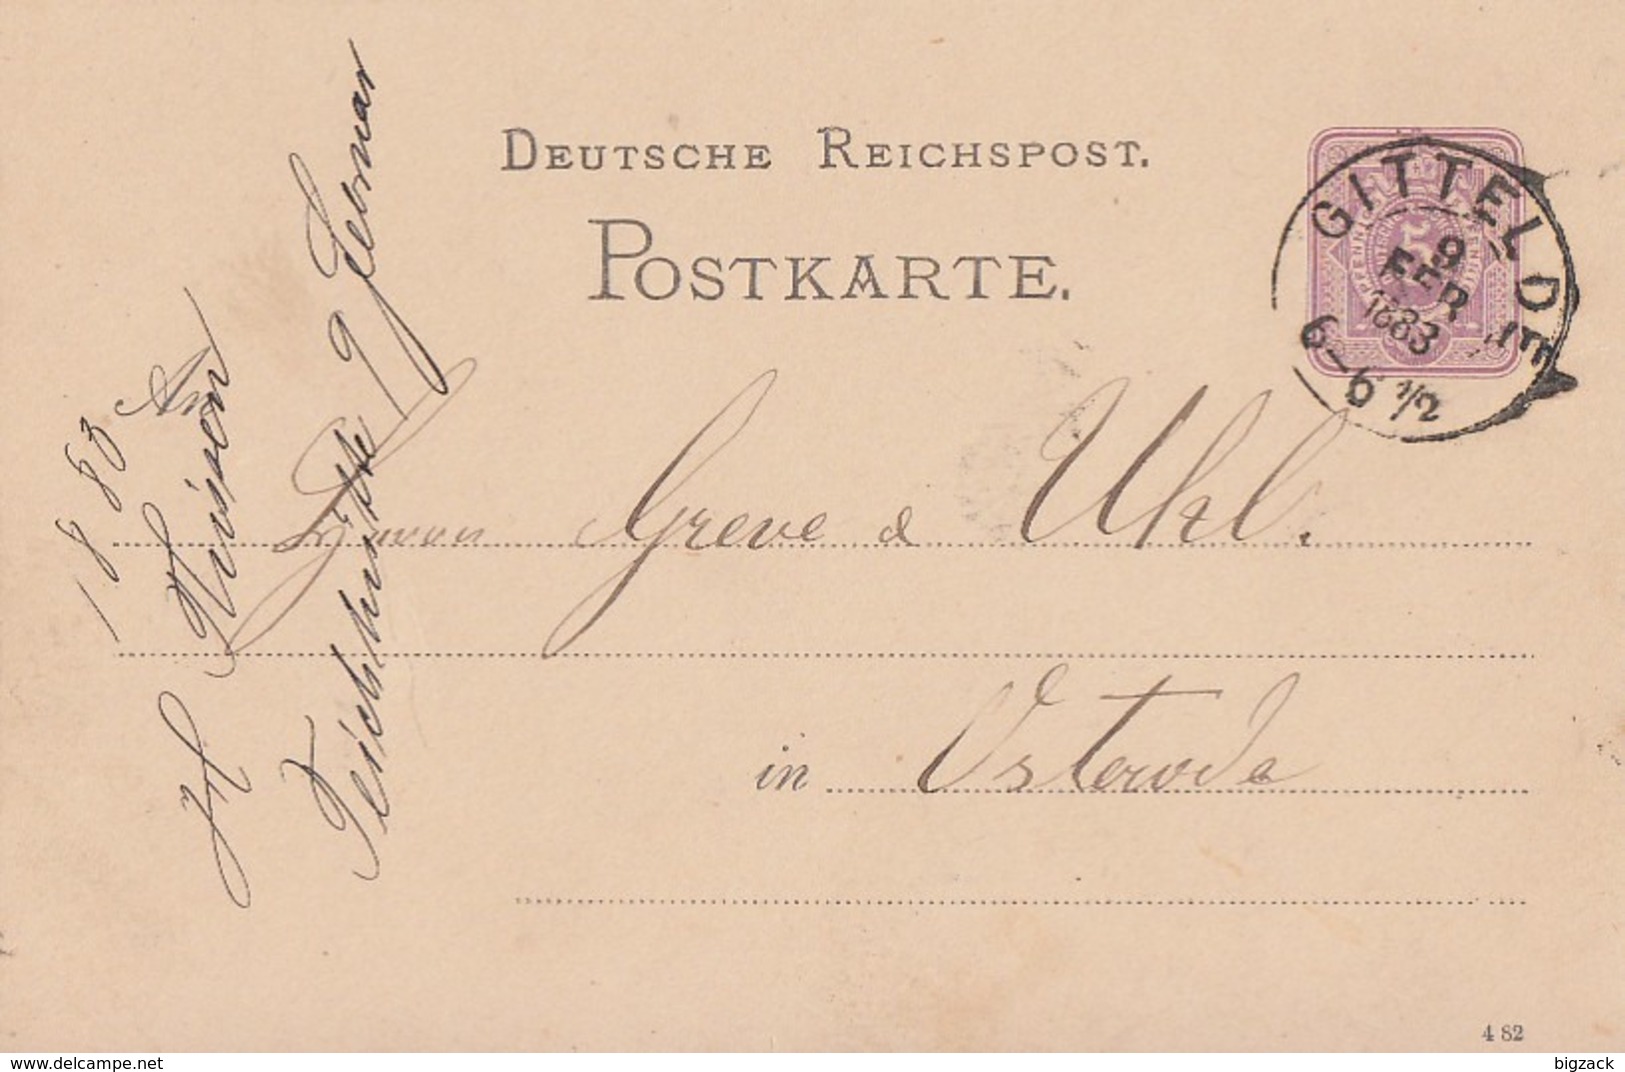 DEUTSCHE REICHSPOST.
POSTKARTE.
GITTELDE
9
FEBR
1883
6-6 1/2
5
An
Herren Greve & Uhl.
in Osterode
1883
Teichhütte 9 Februar
4 82
delcampe.net
bigzack